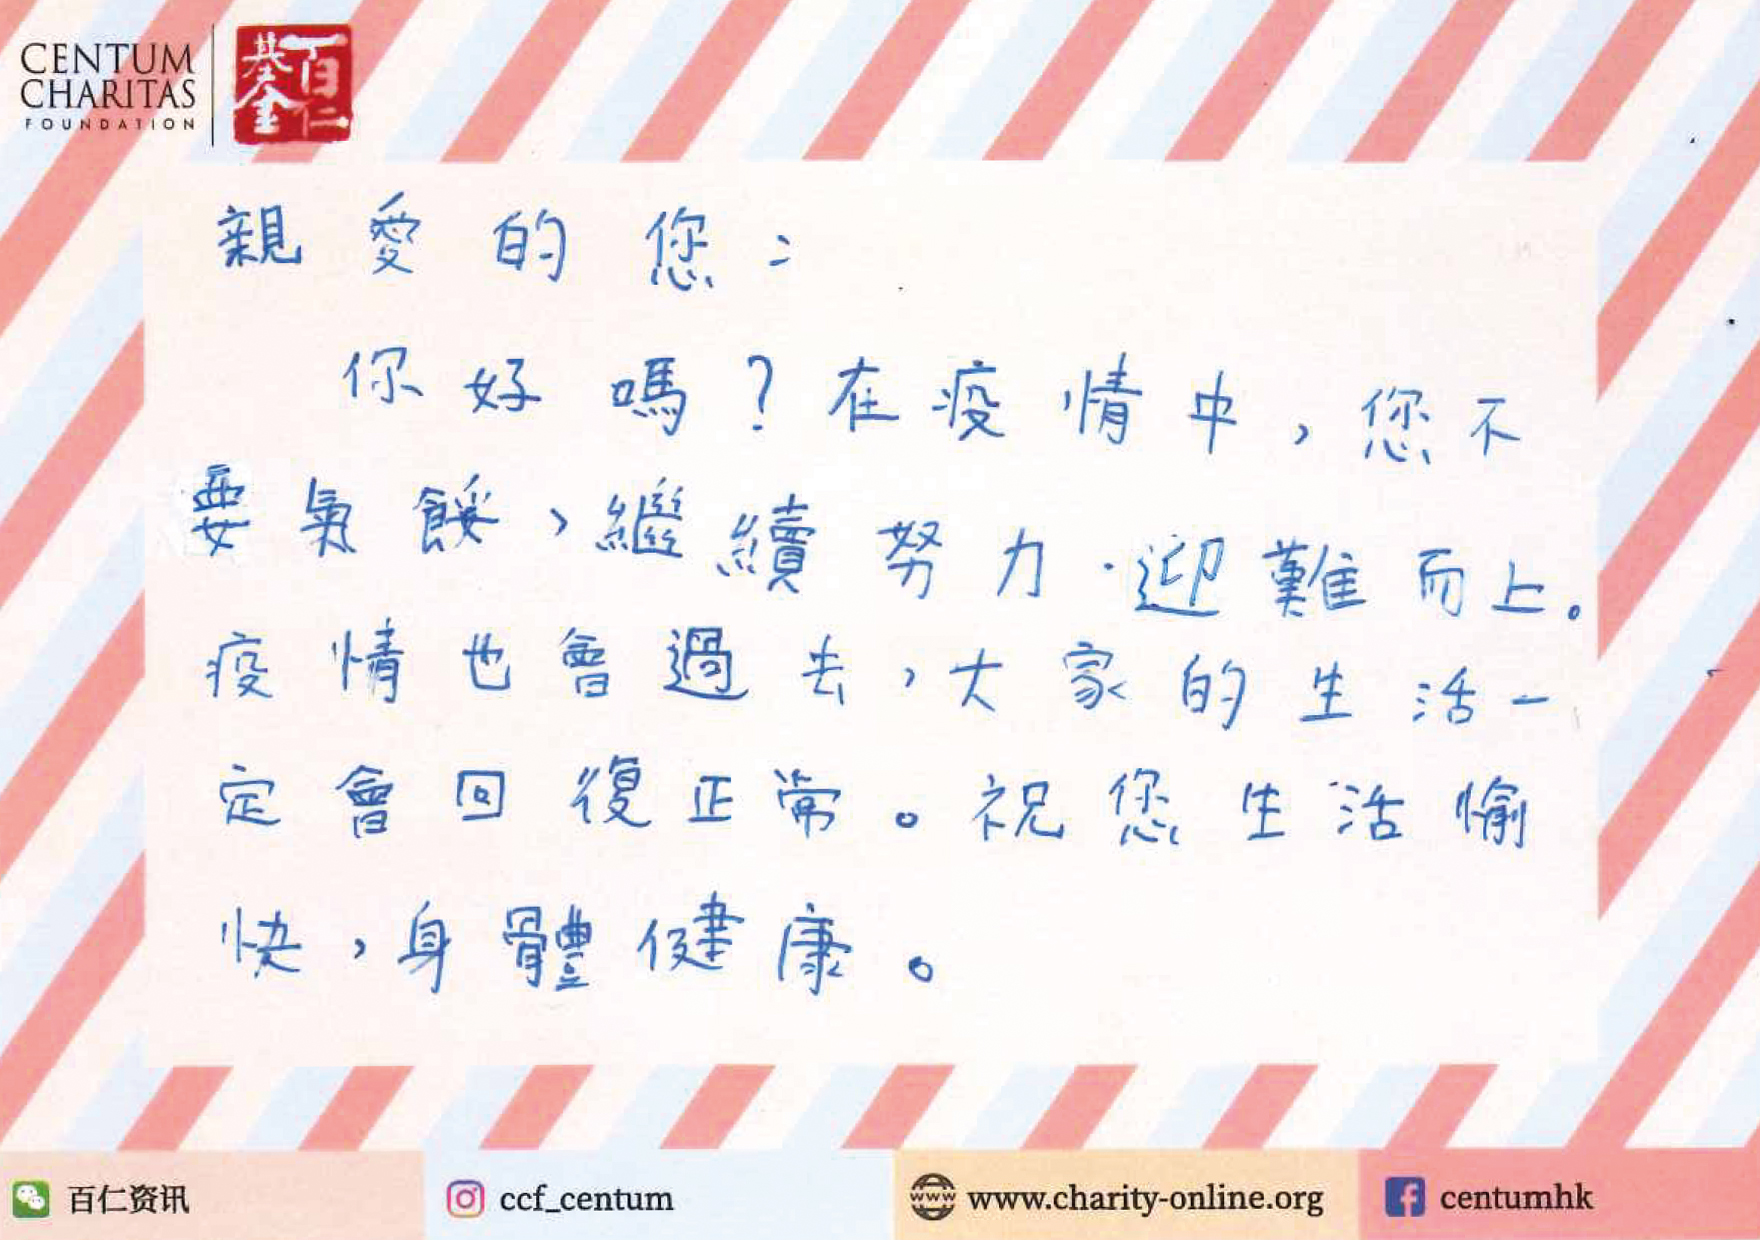 CENTUM
CHARITAS
FOUNDATION
百仁
基金
親愛的您：
你好嗎？在疫情中，您不
要氣餒，繼續努力．迎難而上。
疫情也會過去，大家的生活一
定會回復正常。祝您生活愉
快，身體健康。
百仁资讯
ccf_centum
www.charity-online.org
centumhk